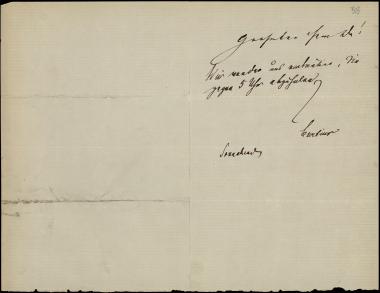 38
Geehrter Herr Dr!
Wir werden uns erlauben, Sie
gegen 5 Uhr abzuholen
Curtius
Sonnabend